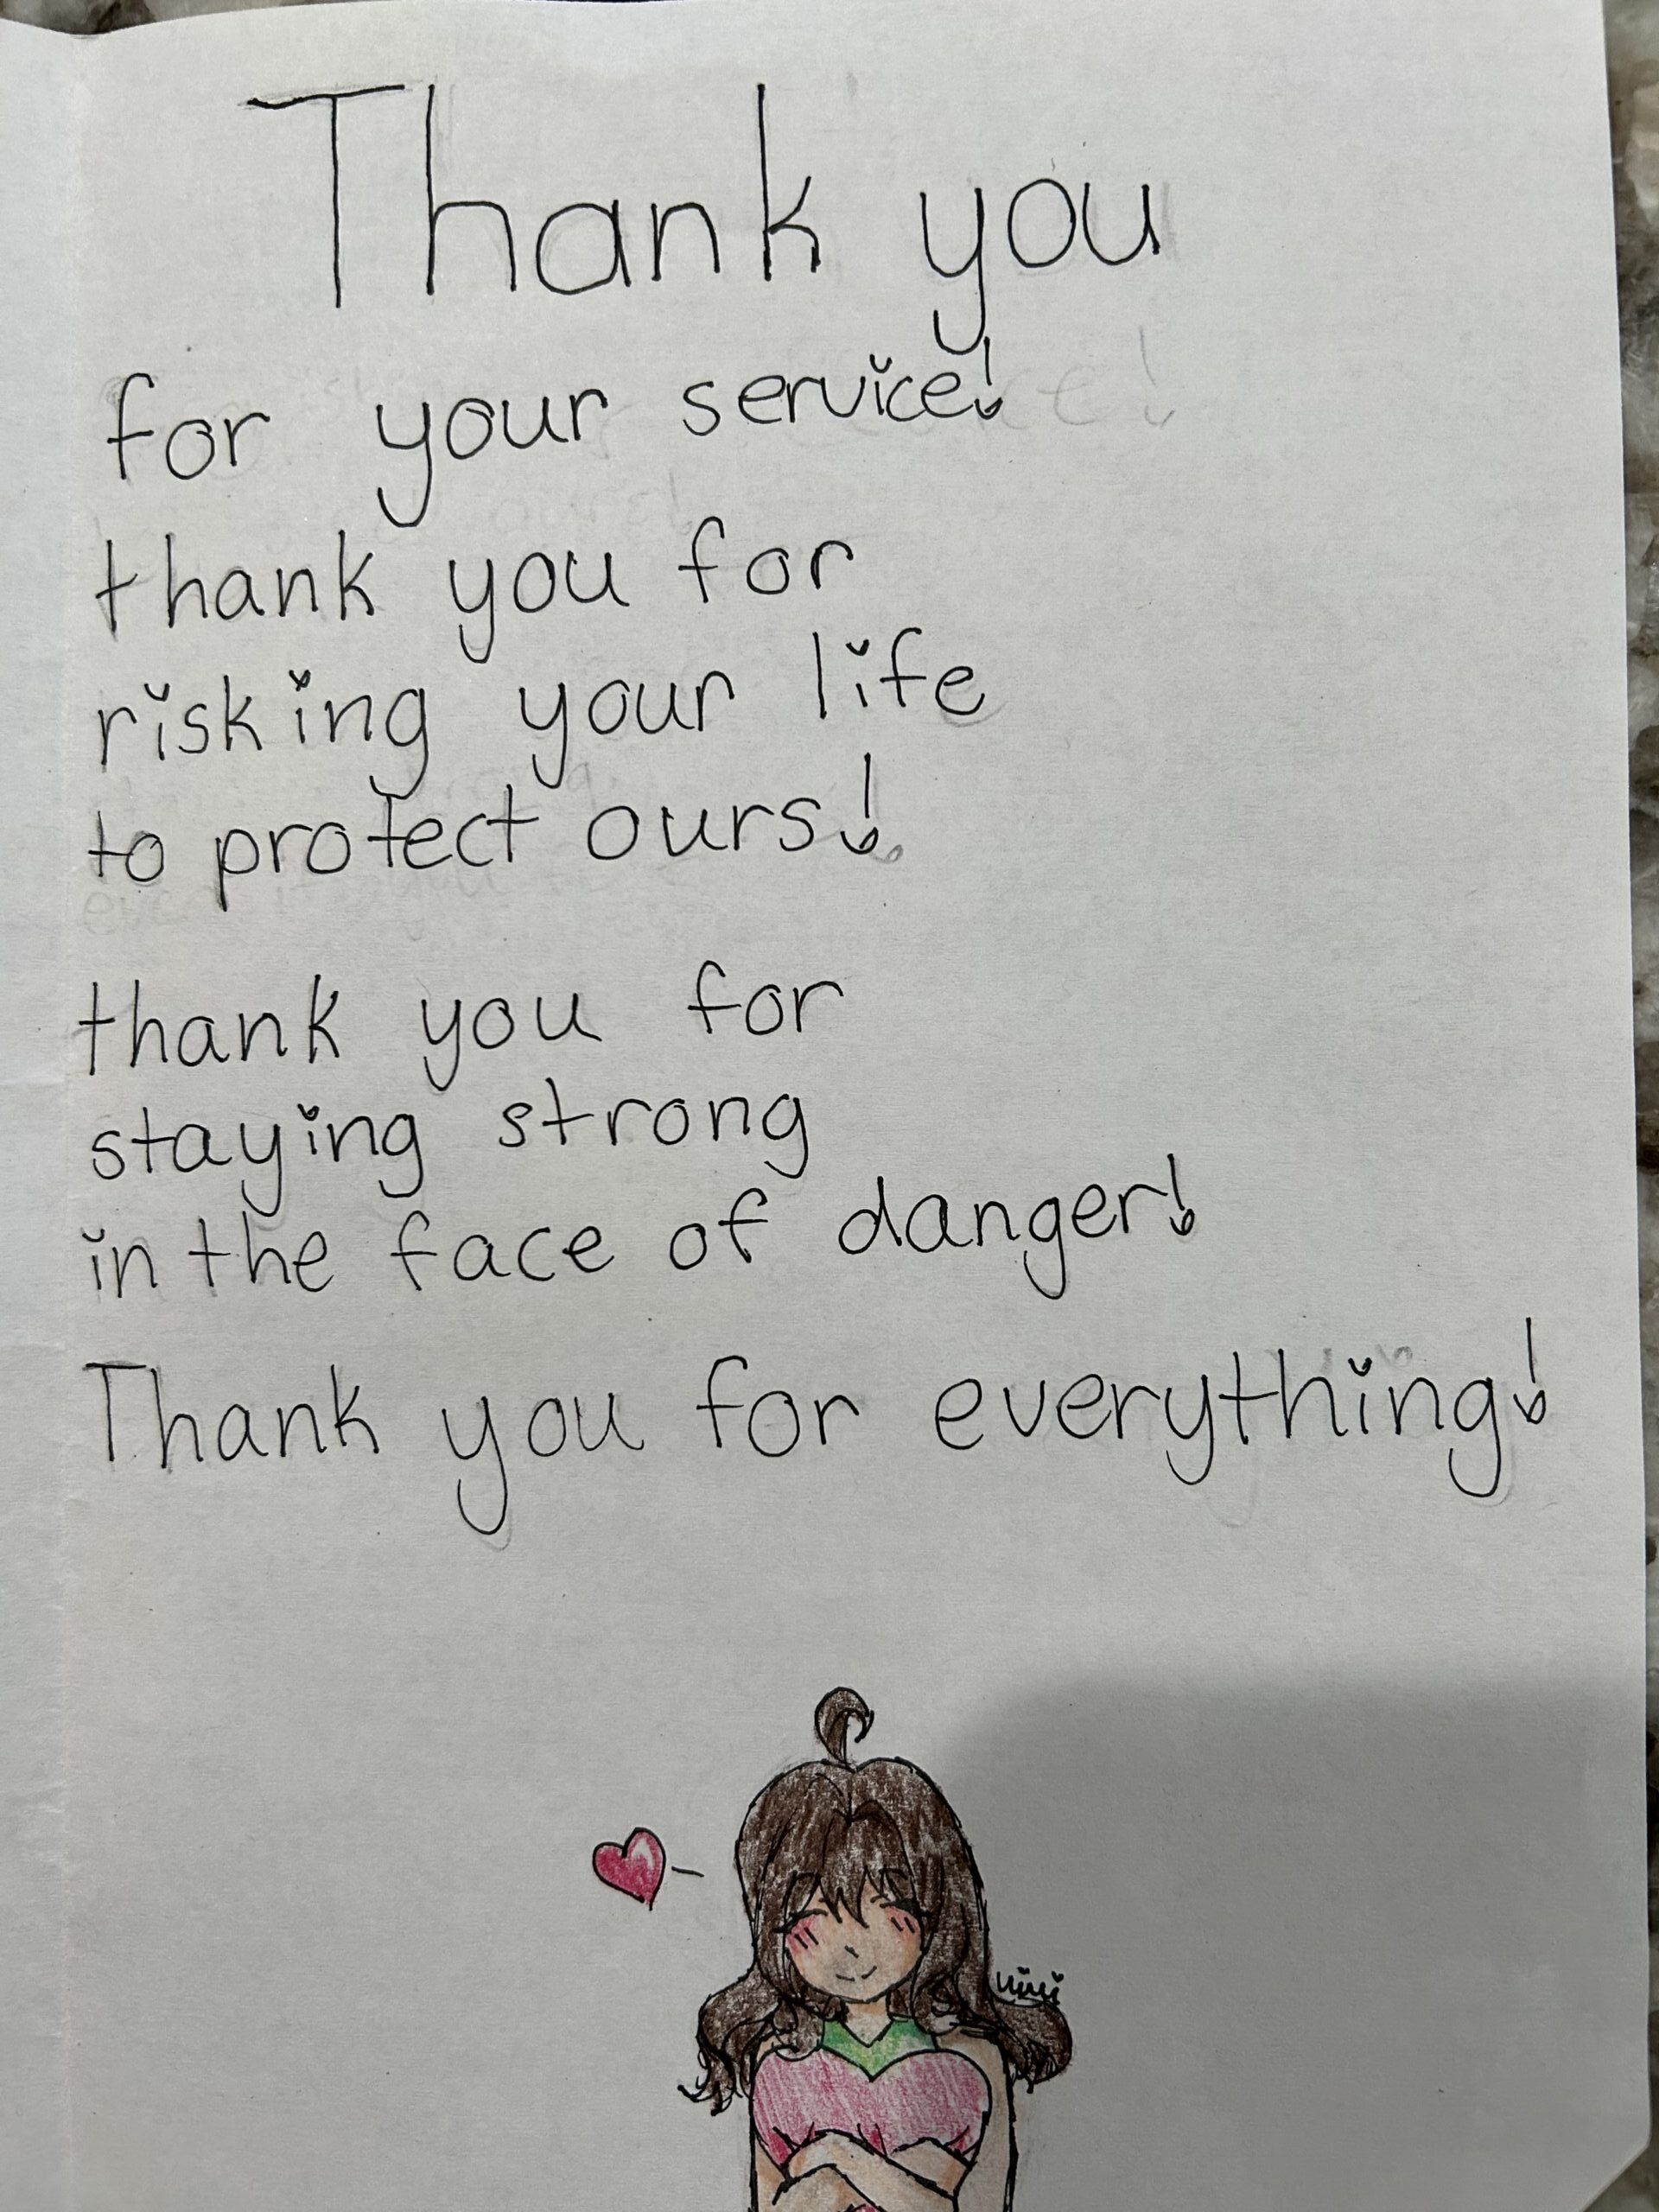 Thank you
for your service!
thank you for
risking your life
to protect ours!
thank you for
staying strong
in the face of danger!
Thank you for everything!